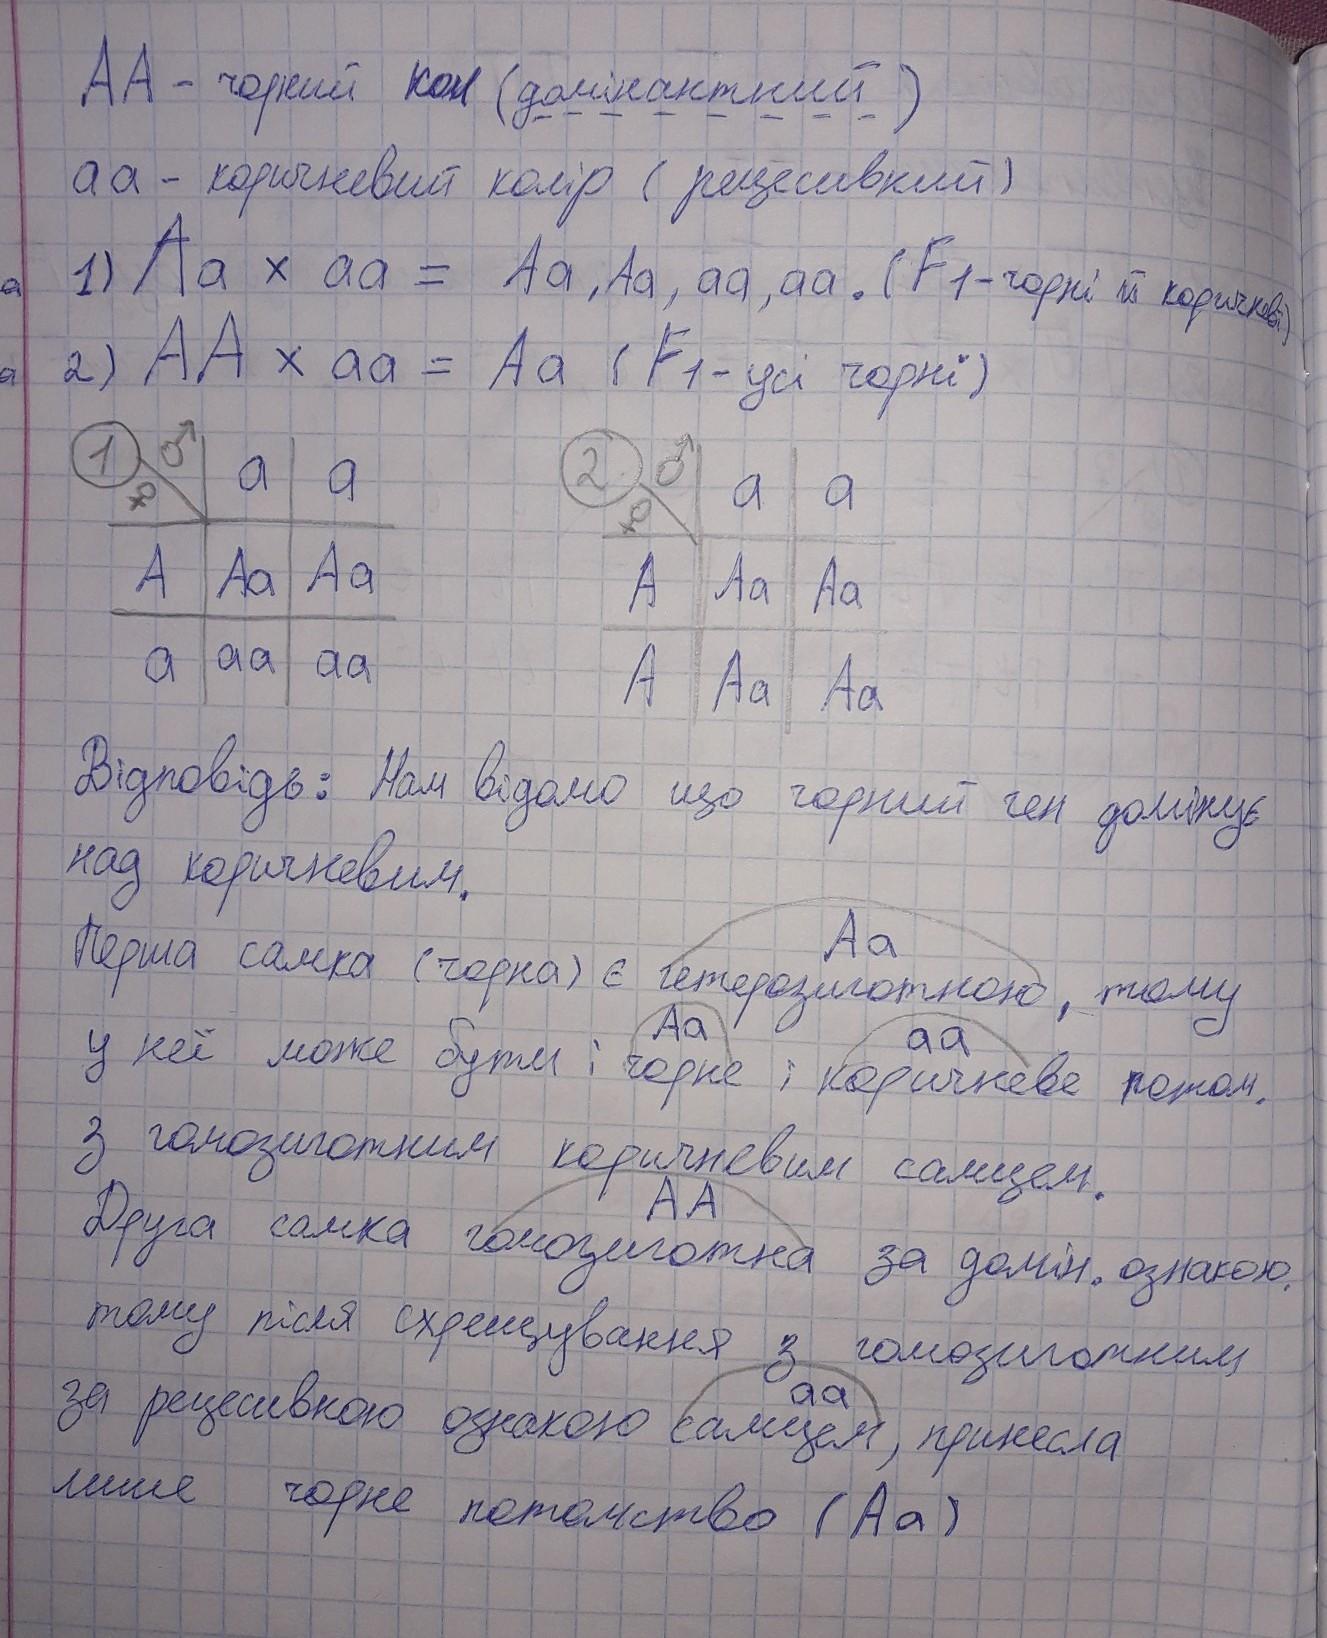 АА - чорний кол (домінантний)
аа - коричневий колір (рецесивний)
а 1) Аа х аа = Аа, Аа, аа, аа. (F1 - чорні й коричневі)
а 2) АА х аа = Аа (F1 - усі чорні)
1 ♂ а а
♀
А Аа Аа
а аа аа
2 ♂ а а
♀
А Аа Аа
А Аа Аа
Відповідь: Нам відомо що чорний ген домінує
над коричневим.
Аа
Перша самка (чорна) є гетерозиготною, тому
Аа аа
у неї може бути і чорне і коричневе потом.
з гомозиготним коричневим самцем.
АА
Друга самка гомозиготна за домін. ознакою,
тому після схрещування з гомозиготним
аа
за рецесивною ознакою самцем, принесла
лише чорне потомство (Аа)